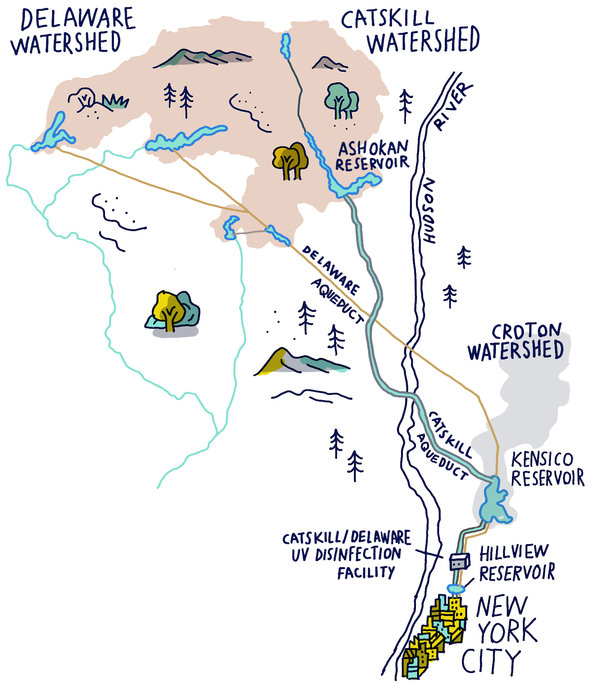 DELAWARE
WATERSHED
CATSKILL
WATERSHED
ASHOKAN
RESERVOIR
HUDSON RIVER
DELAWARE
AQUEDUCT
CROTON
WATERSHED
CATSKILL
AQUEDUCT
KENSICO
RESERVOIR
CATSKILL/DELAWARE
UV DISINFECTION
FACILITY
HILLVIEW
RESERVOIR
NEW
YORK
CITY